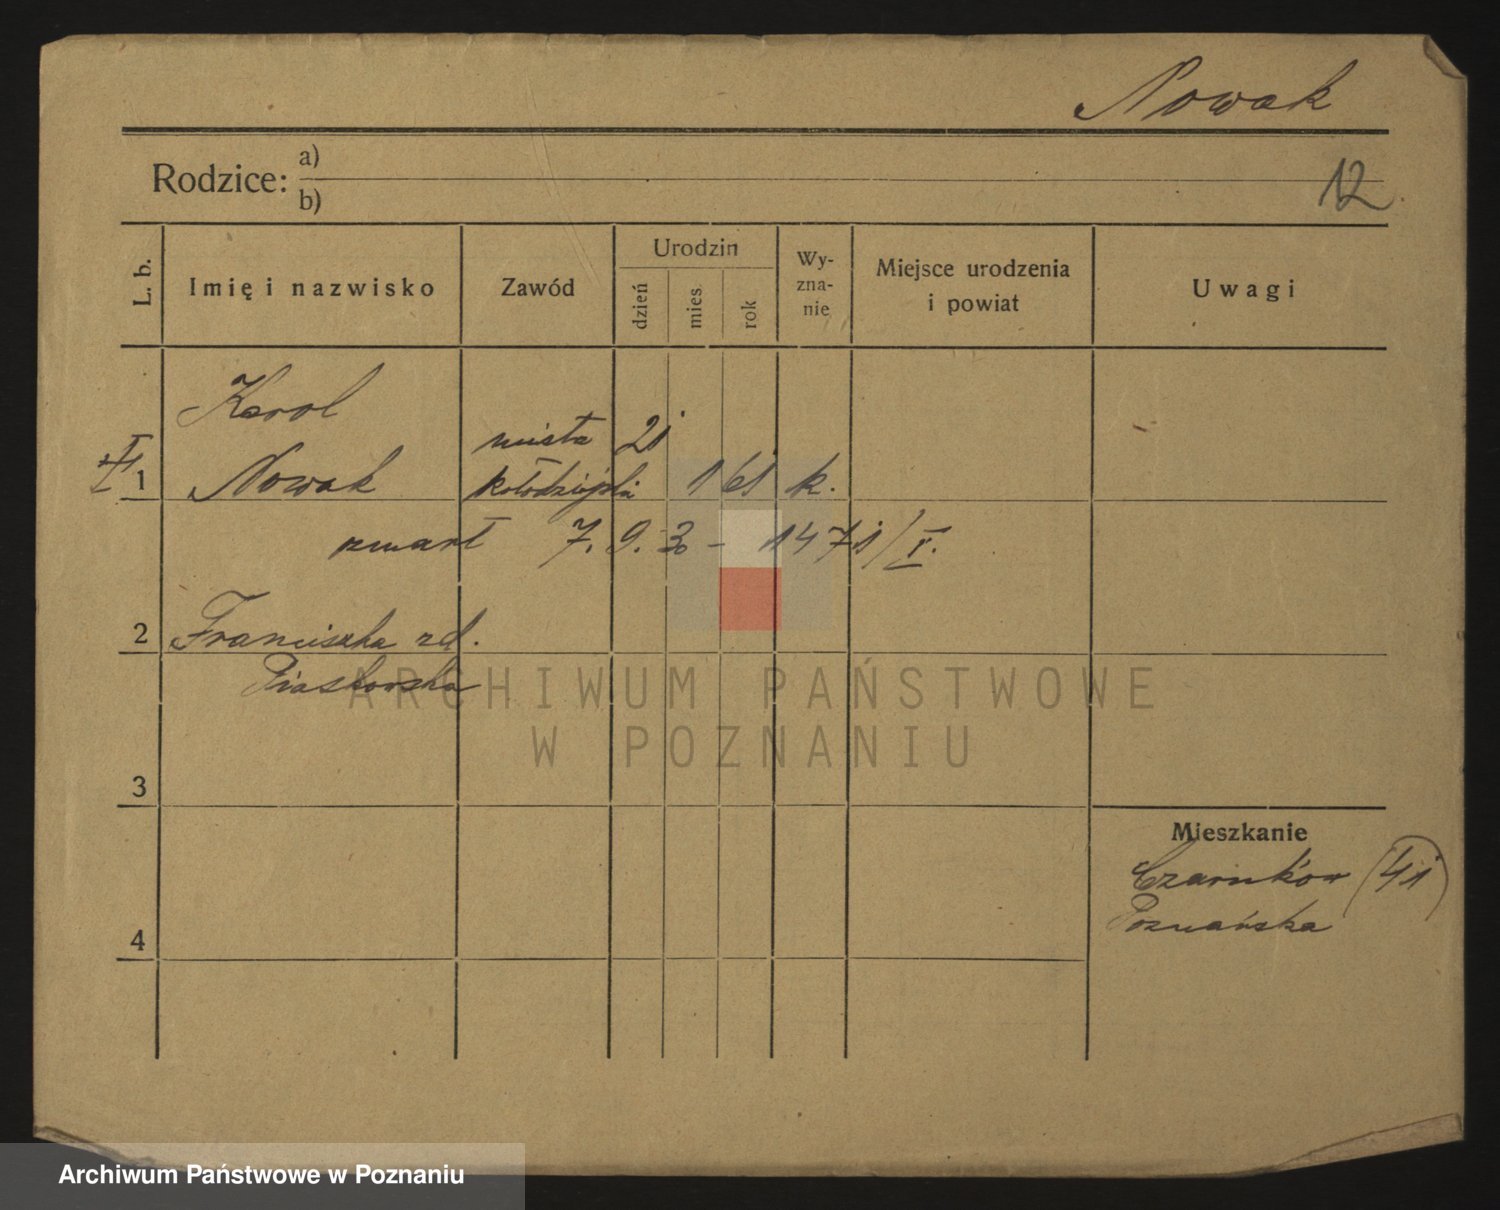 Nowak
Rodzice: a)
b)
12
L. b.
Imię i nazwisko
Zawód
Urodzin
dzień
mies
rok
Wy-
zna-
nie
Miejsce urodzenia
i powiat
Uwagi
Karol
1 Nowak
21 1 61 k.
zmarł 7. 9. 30 – 1471/V.
2 Franciszka zd.
Piaskowska
3
Mieszkanie
Czarnków (41)
Poznańska
4
ARCHIWUM PAŃSTWOWE
W POZNANIU
Archiwum Państwowe w Poznaniu